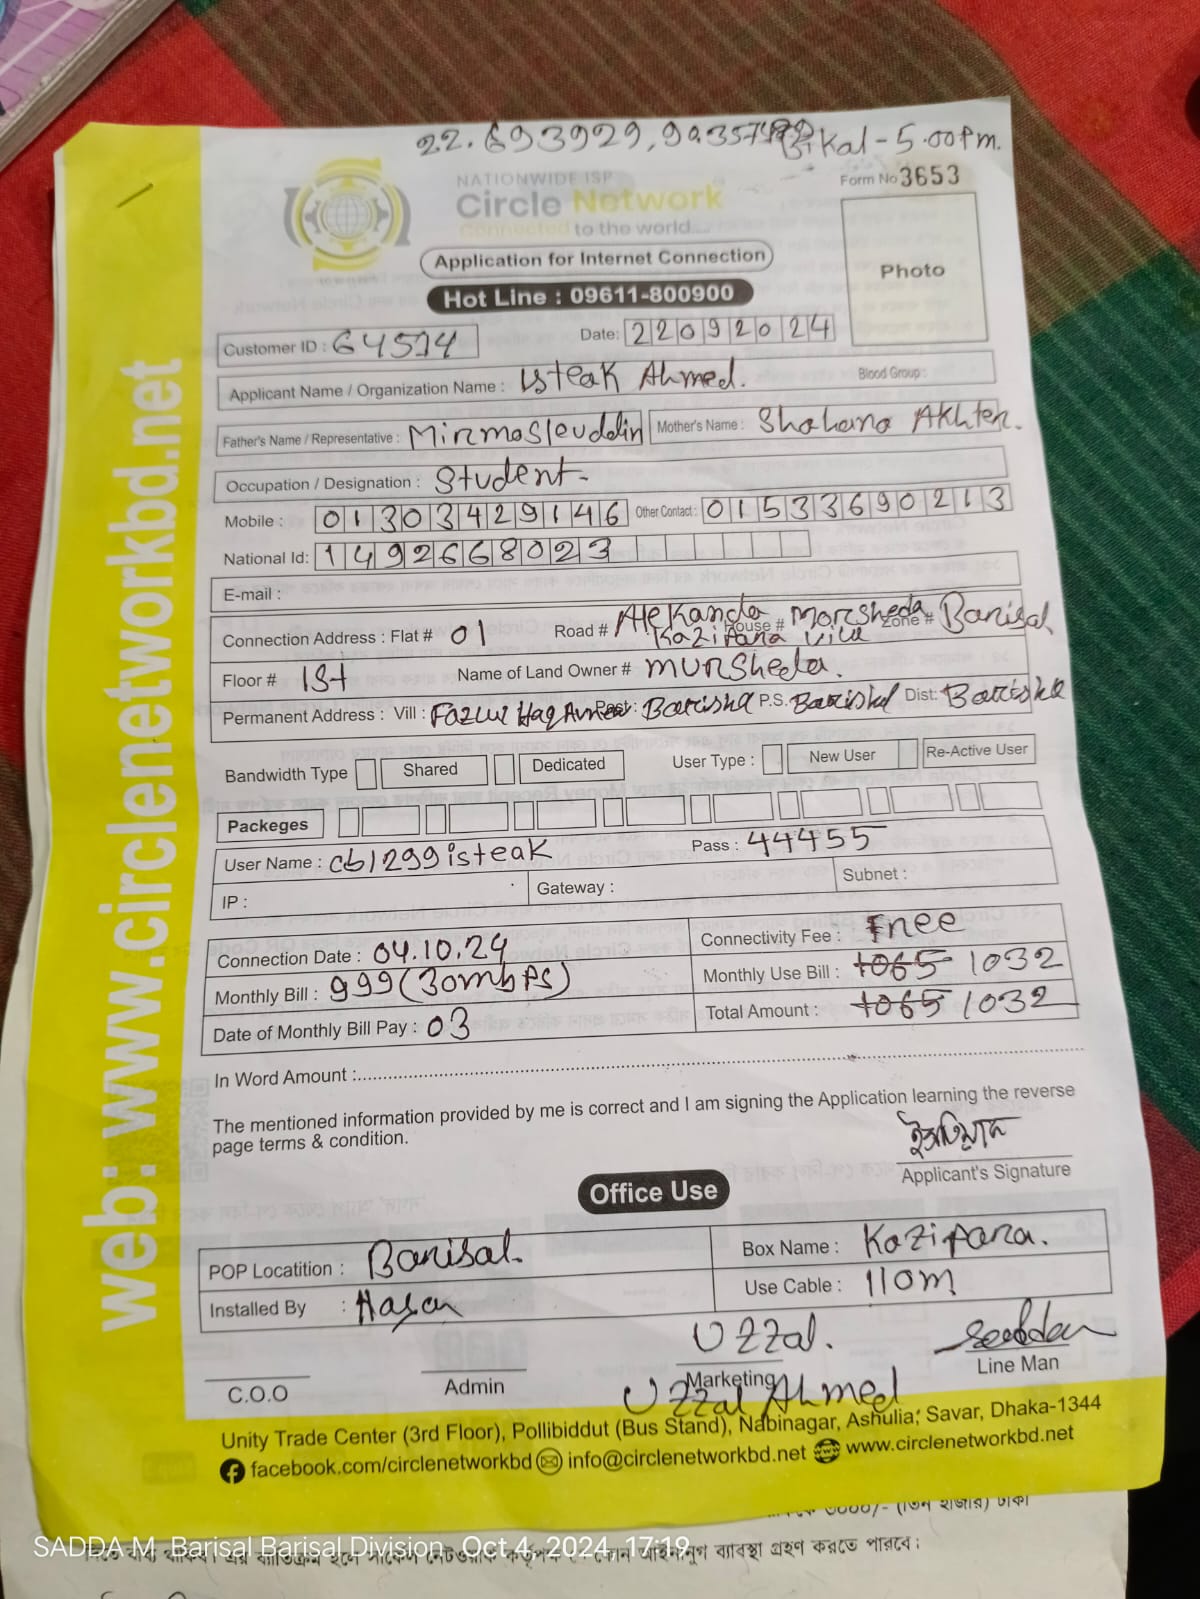 22.693929, 90.35749 Bikal - 5.00 Pm.
Form No 3653
NATIONWIDE ISP
Circle Network
Connected to the world....
Application for Internet Connection
Photo
Hot Line : 09611-800900
Customer ID : 64514 Date: 22092024
Applicant Name / Organization Name : Isteak Ahmed. Blood Group :
Father's Name / Representative : Mirmosleuddin Mother's Name : Shahana Akhter.
Occupation / Designation : Student-
Mobile : 01303429146 Other Contact : 01533690213
National Id: 1492668023
E-mail :
Connection Address : Flat # 01 Road # Alekanda Kazipara House # Morsheda Vila Zone # Barisal
Floor # 1St Name of Land Owner # Mursheda.
Permanent Address : Vill : Fazlul Haq Post : Barishal P.S. Barishal Dist: Barishal
Bandwidth Type Shared Dedicated User Type : New User Re-Active User
Packeges
User Name : cb1299isteak Pass : 44455
IP : Gateway : Subnet :
Connection Date : 04.10.24 Connectivity Fee : Free
Monthly Bill : 999 (30mbPS) Monthly Use Bill : 1065 1032
Date of Monthly Bill Pay : 03 Total Amount : 1065 1032
In Word Amount :
The mentioned information provided by me is correct and I am signing the Application learning the reverse
page terms & condition.
ইসতিয়াক
Applicant's Signature
Office Use
POP Locatition : Barisal. Box Name : Kazipara.
Installed By : Hasan Use Cable : 110m
Uzzal.
C.O.O Admin Marketing Line Man
Uzzal Ahmed
Unity Trade Center (3rd Floor), Pollibiddut (Bus Stand), Nabinagar, Ashulia, Savar, Dhaka-1344
facebook.com/circlenetworkbd info@circlenetworkbd.net www.circlenetworkbd.net
web: www.circlenetworkbd.net
৩০০০/- (তিন হাজার) টাকা
ব্যবস্থা গ্রহণ করতে পারবে।
SADDA M, Barisal Barisal Division, Oct 4, 2024, 17:19